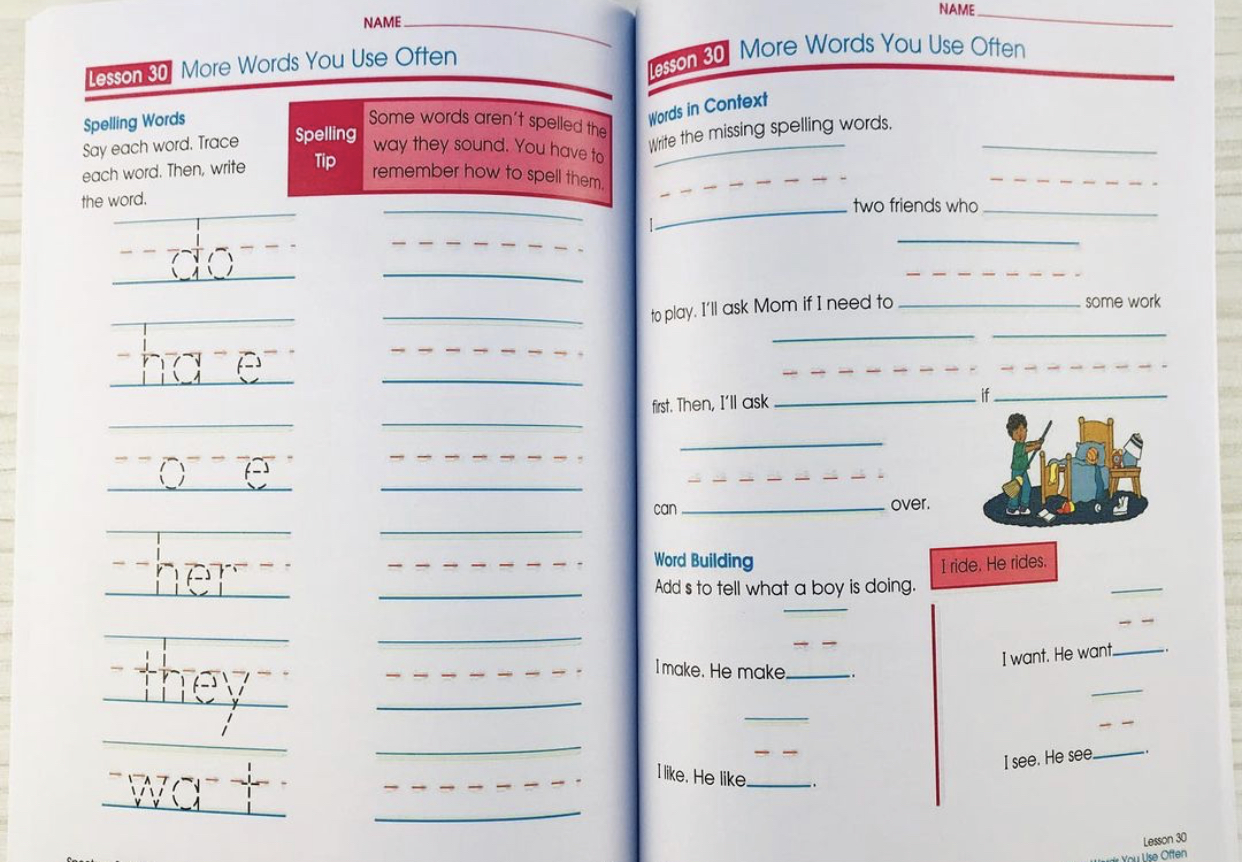 NAME
Lesson 30 More Words You Use Often
Spelling Words
Say each word. Trace
each word. Then, write
the word.
Spelling
Tip
Some words aren't spelled the
way they sound. You have to
remember how to spell them.
do
ha e
o e
her
they
wa t
NAME
Lesson 30 More Words You Use Often
Words in Context
Write the missing spelling words.
I two friends who
to play. I'll ask Mom if I need to some work
first. Then, I'll ask if
can over.
Word Building
Add s to tell what a boy is doing.
I ride. He rides.
I make. He make .
I like. He like .
I want. He want .
I see. He see .
Lesson 30
Words You Use Often